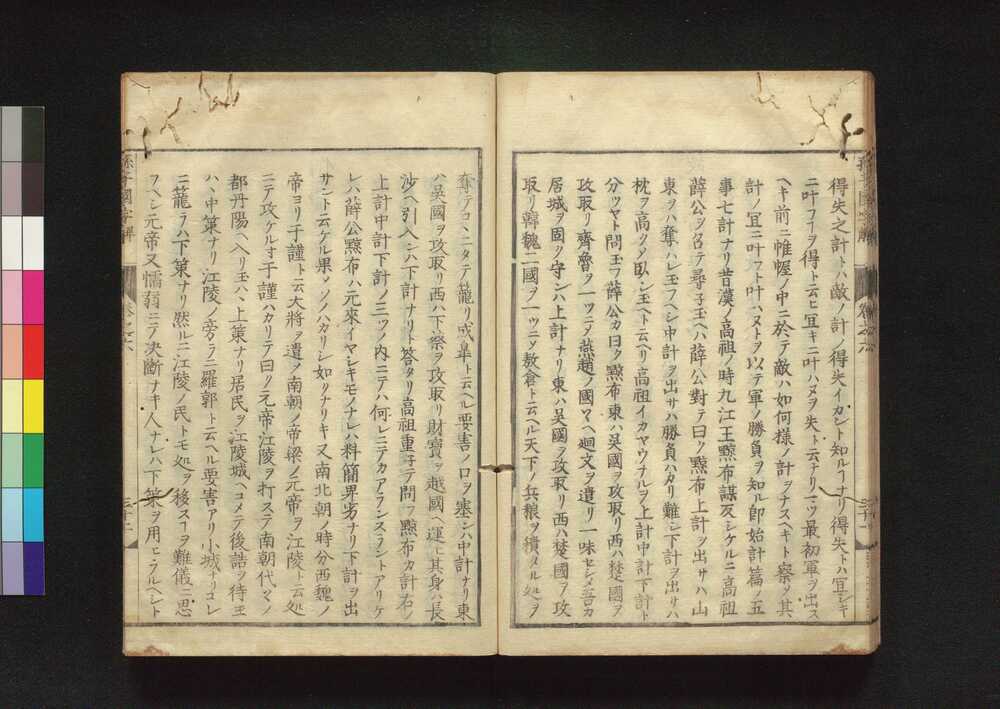 得失之計トハ敵ノ計ノ得失イカント知ルヿナリ得失トハ冝シキ
ニ叶フヿヲ得ト云ヒ冝キニ叶ハヌヲ失ト云ナリマツ最初軍ヲ出スヘ
ヘキ前ニ帷幄ノ中ニ於テ敵ハ如何様ノ計ヲナスヘキト察メ其
計ノ冝ニ叶フト叶ハヌトヲ以テ軍ノ勝負ヲ知ル即始計篇ノ五
事七計ナリ昔漢ノ高祖ノ時九江王黥布謀反シケルニ高祖
薛公ヲ召テ尋子玉ヘハ薛公對テ曰ク黥布上計ヲ出サハ山
東ヲハ奪ハレ玉フヘシ中計ヲ出サハ勝負ハカリ難シ下計ヲ出サハ
枕ヲ高クメ臥シ玉ヘト云ヘリ高祖イカヤウナルヲ上計中計下計ト
分ツヤト問玉フ薛公カ曰ク黥布東ハ吳國ヲ攻取リ西ハ楚國ヲ
攻取リ齊魯ヲ一ツニメ燕趙ノ國マヘ廻文ヲ遣リ一味セシメ吾カ
居城ヲ固ク守ンハ上計ナリ東ハ吳國ヲ攻取リ西ハ楚國ヲ攻
取リ韓魏二國ヲ一ツニメ敖倉ト云ヘル天下ノ兵粮ヲ積タル処ヲ
奪テコヽニタテ籠リ成皐ト云ヘル要害ノ口ヲ塞シハ中計ナリ東
ハ吳國ヲ攻取リ西ハ下蔡ヲ攻取リ財寶ヲ越國ヘ運ヒ其身ハ長
沙ヘ引入シハ下計ナリト答タリ高祖重子テ問フ黥布カ計右ノ
上計中計下計ノ三ツノ内ニテハ何レニテカアランスラントアリケ
レハ薛公黥布ハ元來イヤシキモノナレハ料簡卑劣ナリ下計ヲ出
サント云ケル果メソノハカリシ如クナリキ又南北朝ノ時分西魏ノ
帝ヨリ于謹ト云大將ヲ遣メ南朝ノ帝梁ノ元帝ヲ江陵ト云処
ニテ攻ケルオ于謹ハカリテ曰ク元帝江陵ヲ打ステ南朝代々ノ
都丹陽ヘ入リ玉ハヽ上策ナリ居民ヲ江陵城ヘコメテ後詰ヲ待玉
ハヽ中策ナリ江陵ノ旁ラニ羅郭ト云ヘル要害アリ小城ナリコレ
ニ籠ラハ下策ナリ然ルニ江陵ノ民トモ処ヲ移スヿヲ難儀ニ思
フヘシ元帝又懦弱ニテ決斷ナキ人ナレハ下策ヲ用ヒラルヘシト
孫子國字解
卷之六
三十二